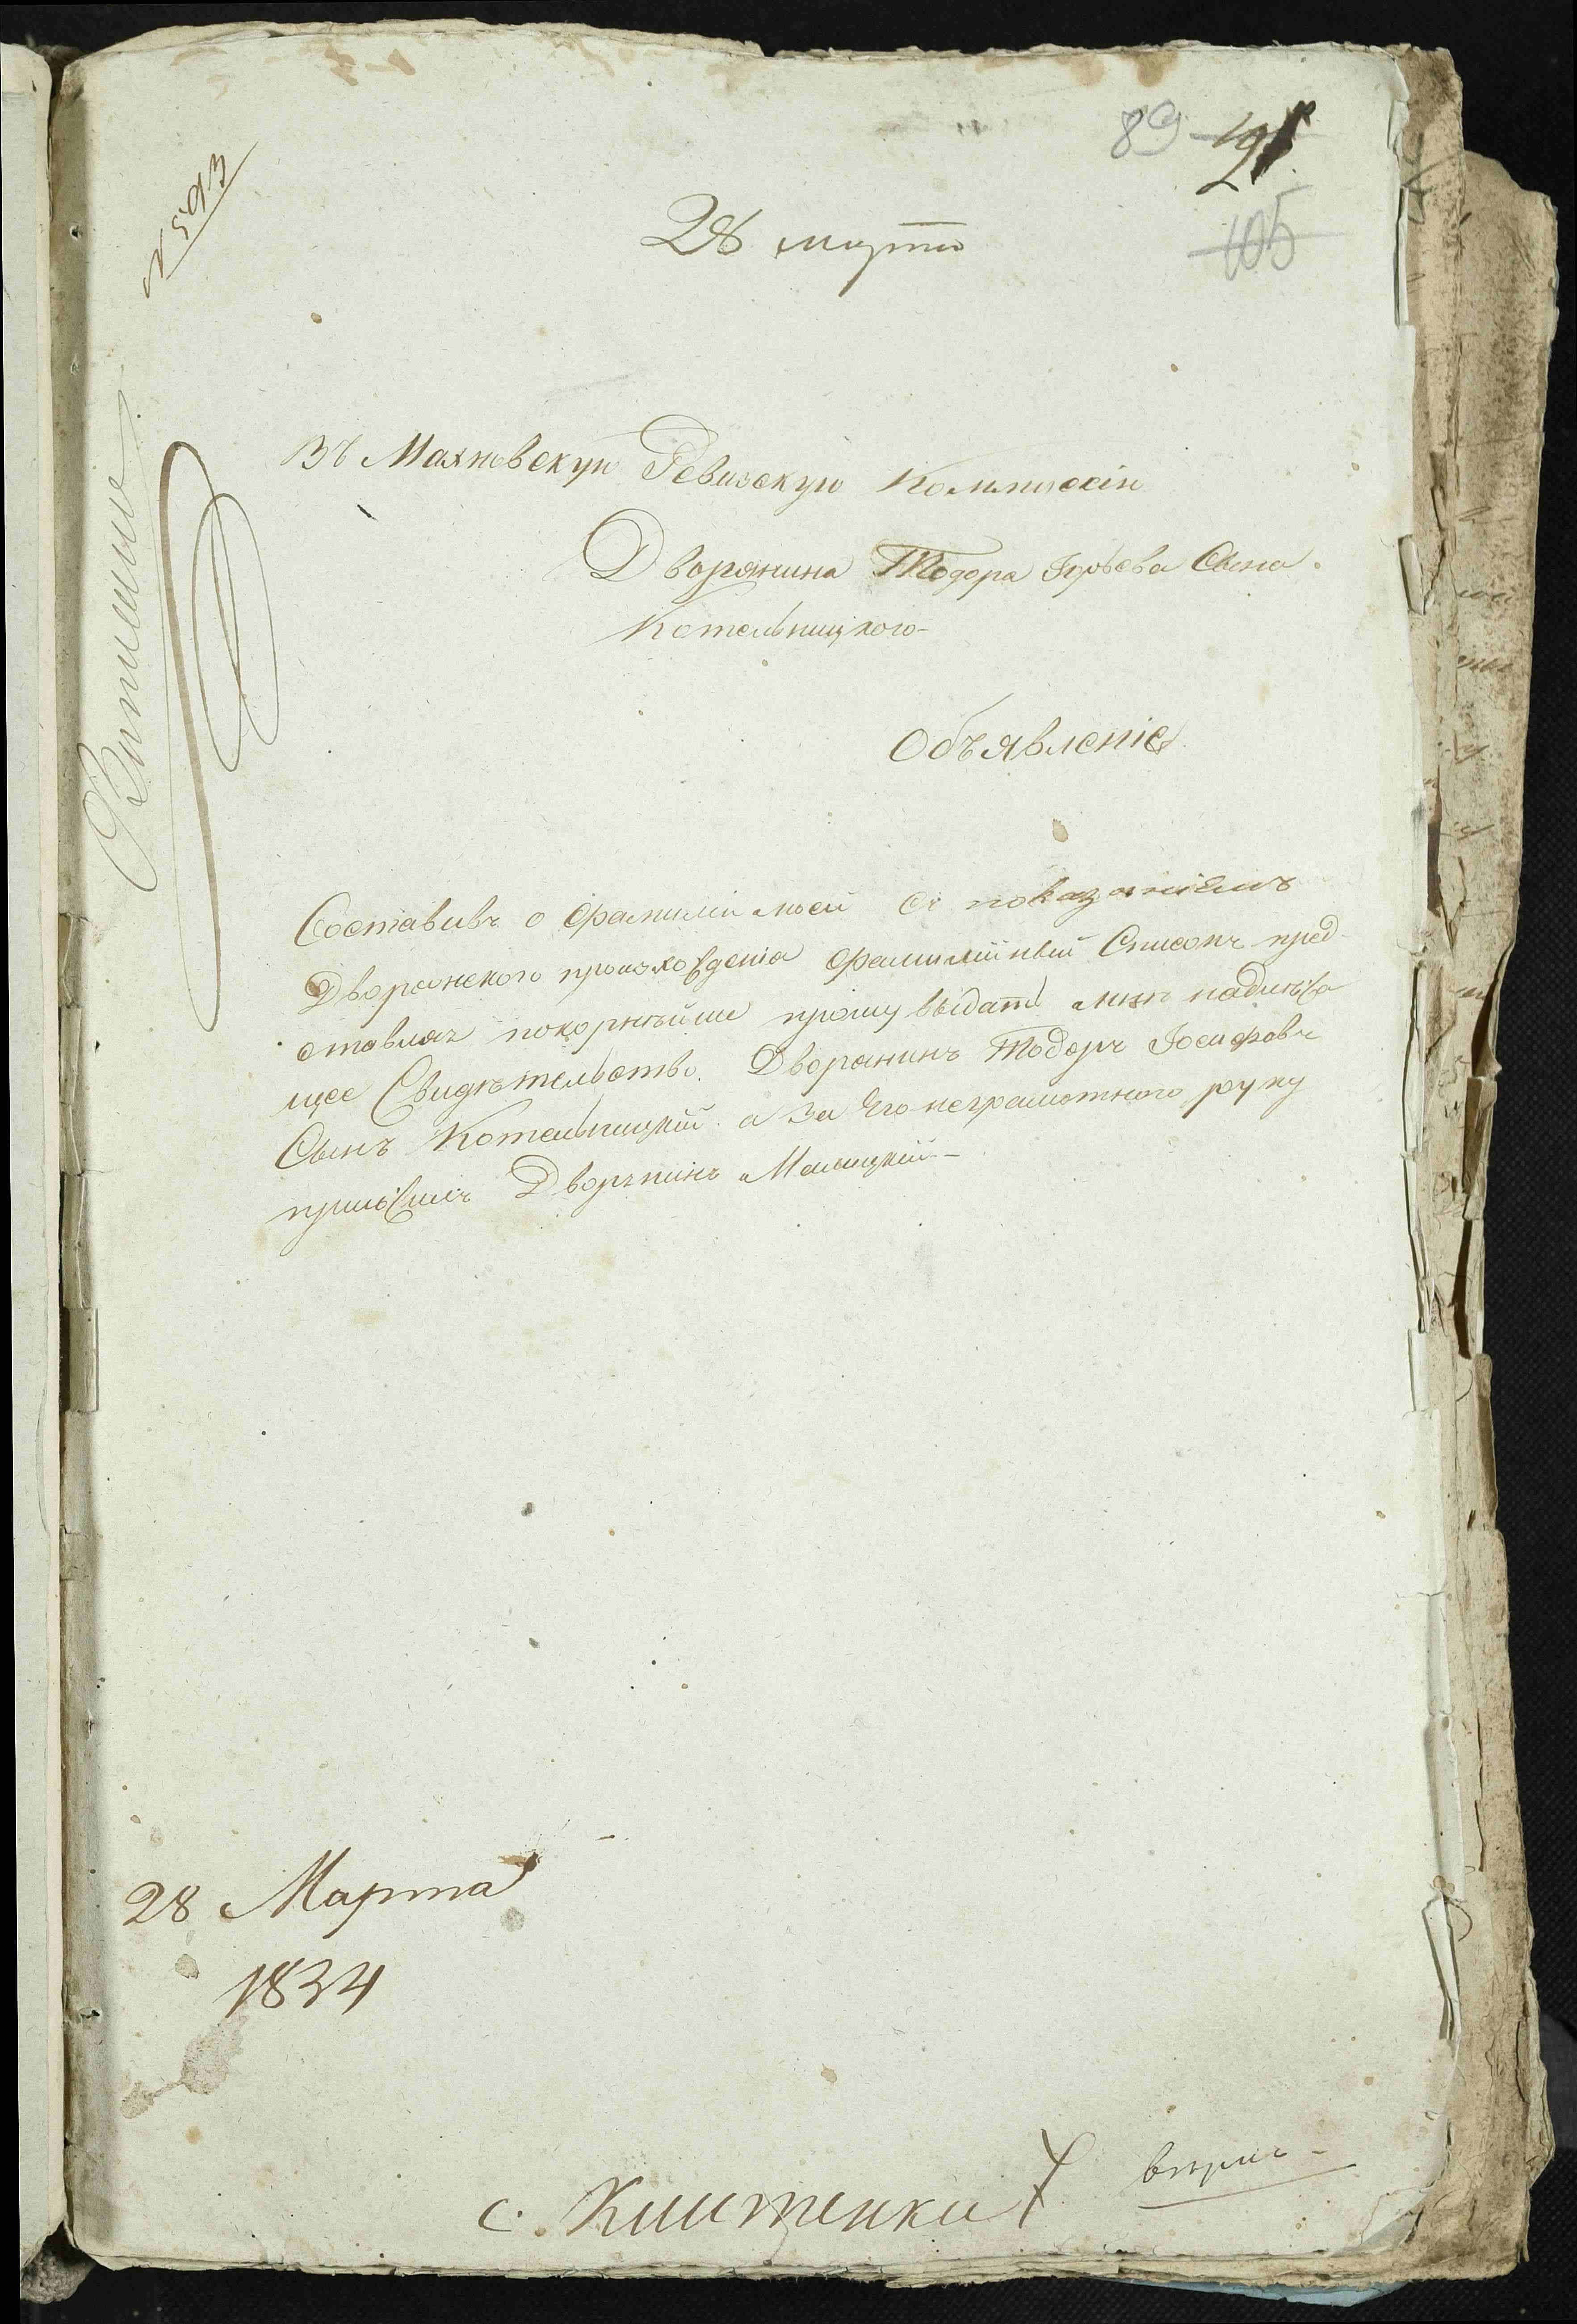 89
105
№ 593
28 марта
Въ Махновскую Ревизскую Коммиссію
Дворянина Тодора Сына
Котельницкого-
Объявленіе
Составивъ о фамиліи моей съ показаніемъ
Дворянского происхожденія фамилійный Списокъ пред-
ставляя покорнѣйше прошу выдать мнѣ надлежа
щее Свидѣтельство. Дворянинъ Тодоръ Іосифовъ
Сынъ Котельницкій а за Его неграмотного руку
приложилъ Дворянинъ
28 Марта
1834
с. Клитенки